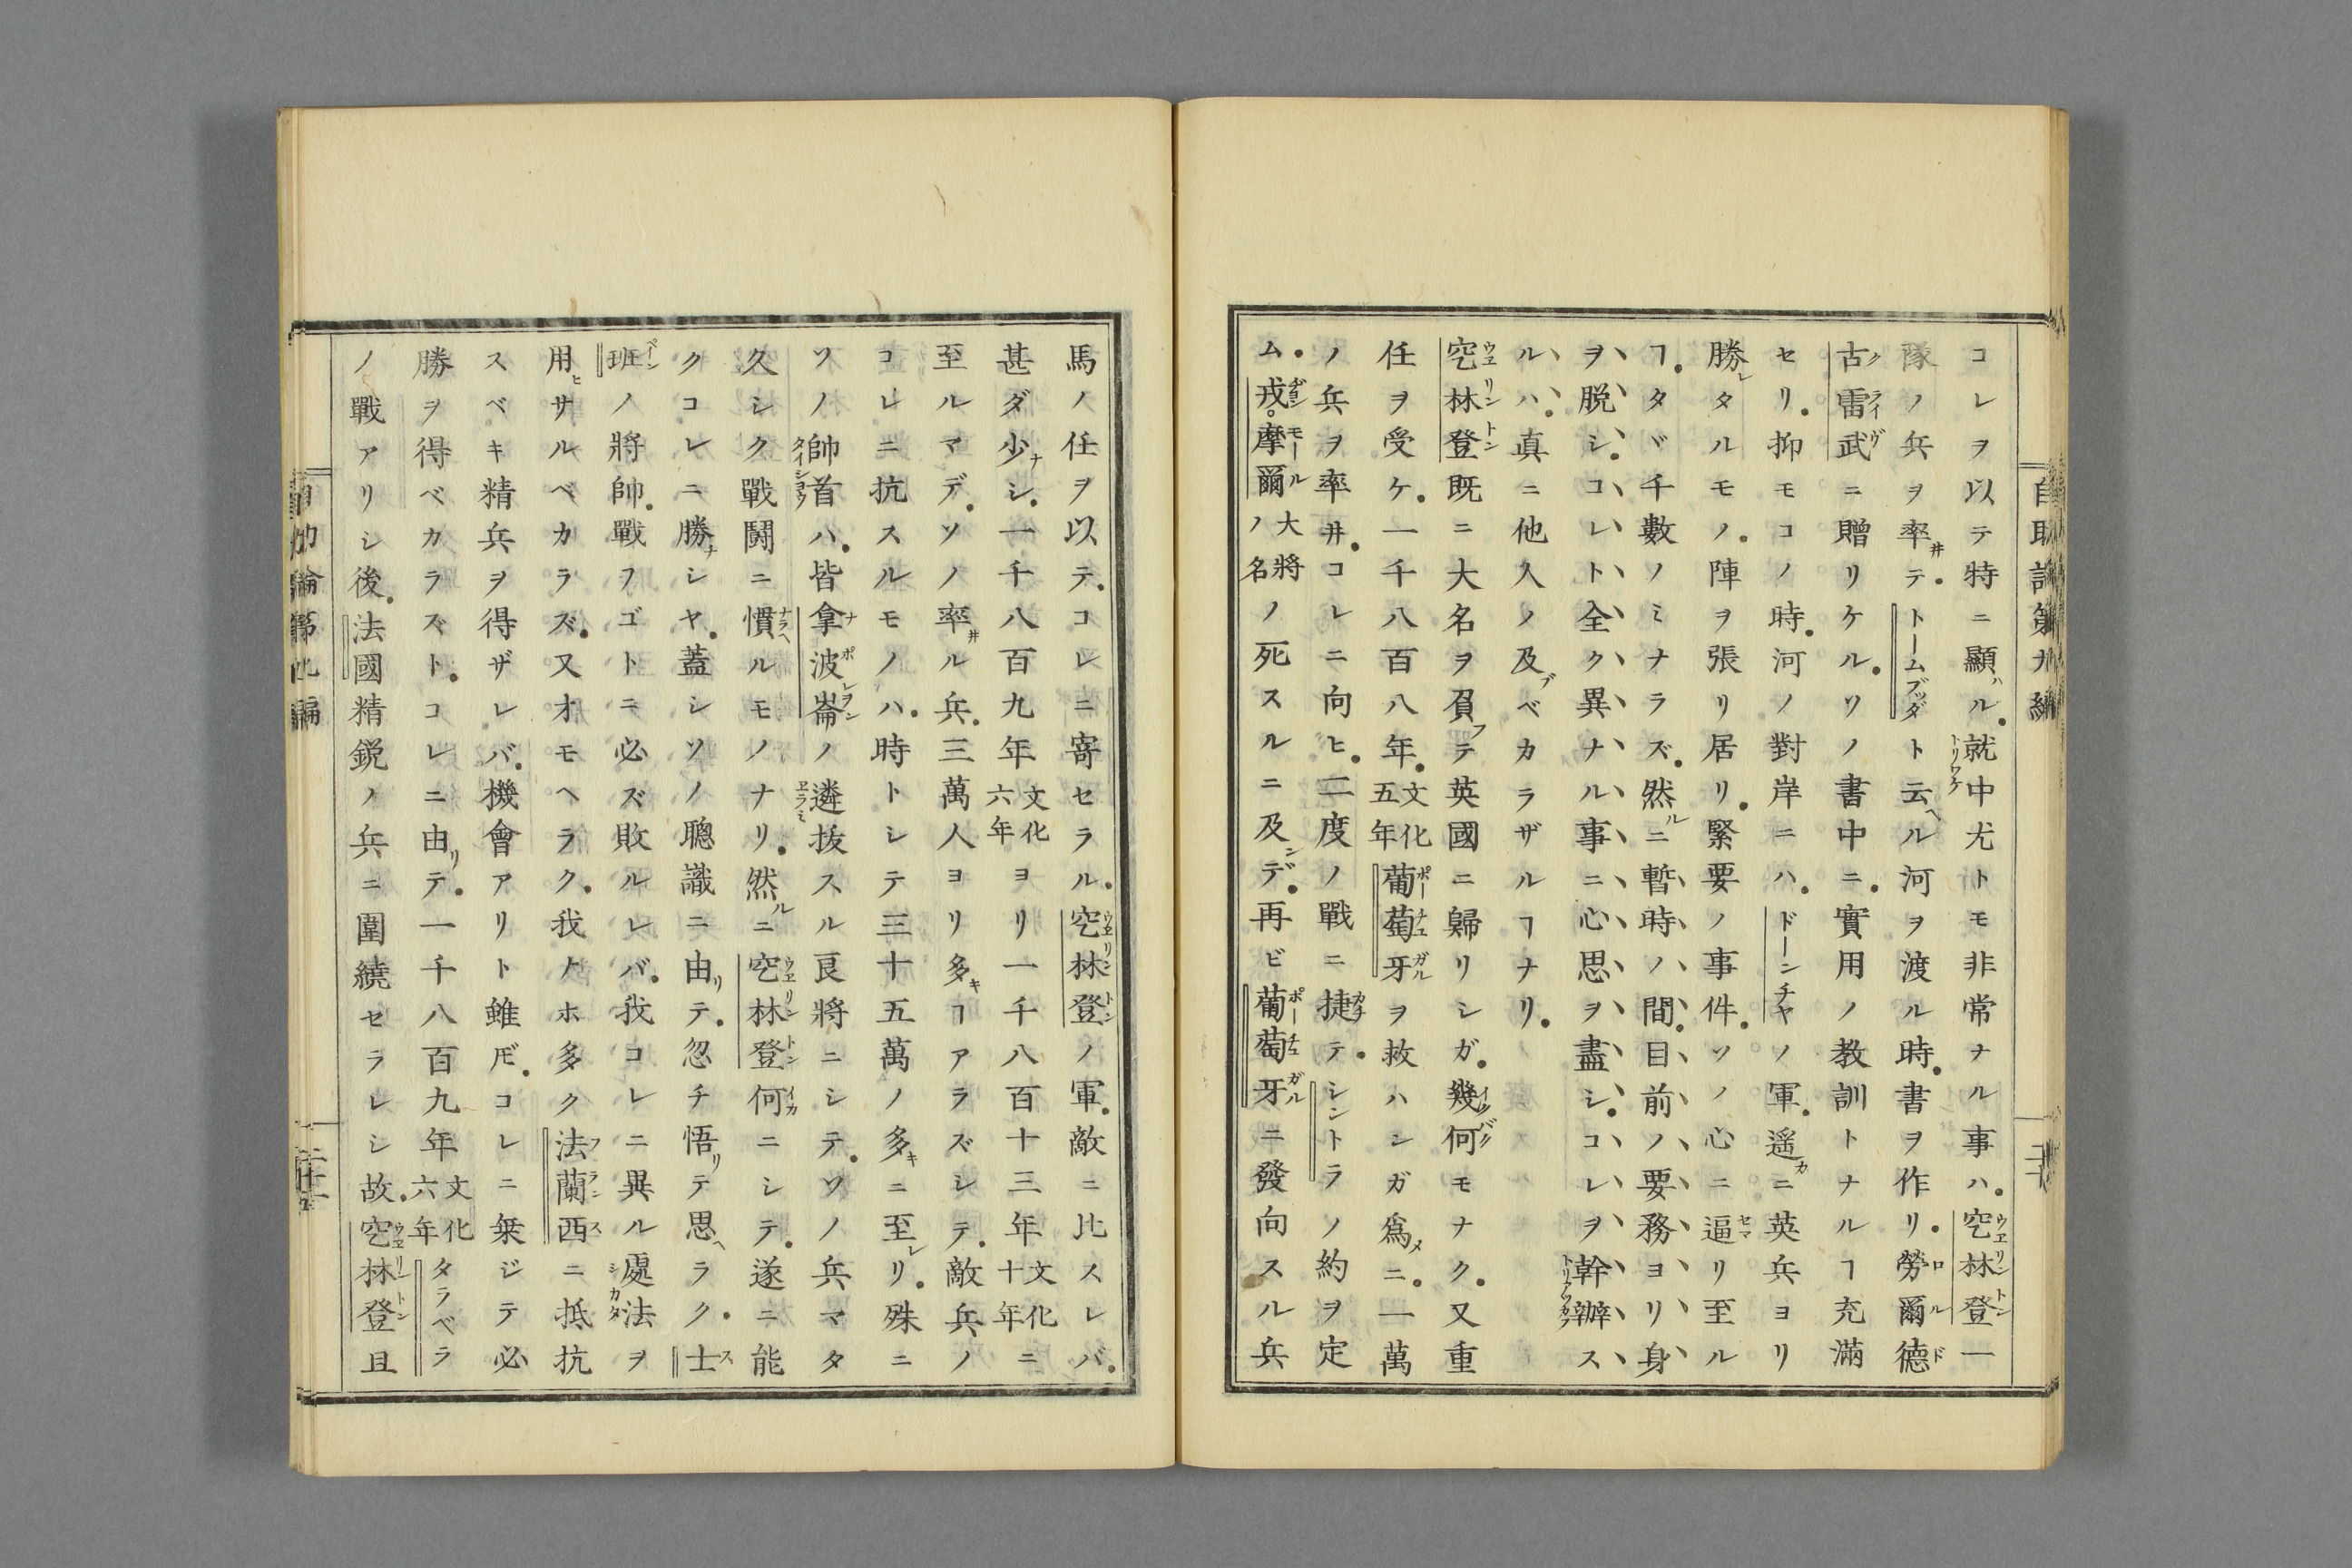 コレヲ以テ特ニ顯ハル。就中尤トモ非常ナル事ハ。空林登一
隊ノ兵ヲ率井テ。トームブッダト云ヘル河ヲ渡ル時。書ヲ作リ。勞爾德
古雷武ニ贈リケル。ソノ書中ニ。實用ノ教訓トナルヿ充滿
セリ。抑モコノ時。河ノ對岸ニハ。ドーンチヤノ軍。遥カニ英兵ヨリ
勝レタルモノ。陣ヲ張リ居リ。緊要ノ事件。ソノ心ニ逼リ至ル
ヿ。タヾ千數ノミナラズ。然ルニ暫時ノ間。目前ノ要務ヨリ身
ヲ脱シ。コレト全ク異ナル事ニ心思ヲ盡シ。コレヲ幹辦ス
ルハ。真ニ他人ノ及ブベカラザルヿナリ。
空林登既ニ大名ヲ負フテ英國ニ歸リシガ。幾何モナク。又重
任ヲ受ケ。一千八百八年。文化五年葡萄牙ヲ救ハンガ爲メニ。一萬
ノ兵ヲ率井。コレニ向ヒ。二度ノ戰ニ捷テ。シントラノ約ヲ定
ム。戎。摩爾大將ノ名ノ死スルニ及ンデ。再ビ葡萄牙ニ發向スル兵
馬ノ任ヲ以テ。コレニ寄セラル。空林登ノ軍。敵ニ比スレバ。
甚ダ少ナシ。一千八百九年文化六年ヨリ一千八百十三年文化十年ニ
至ルマデ。ソノ率井ル兵。三萬人ヨリ多キヿアラズシテ。敵兵ノ
コレニ抗スルモノハ。時トシテ三十五萬ノ多キニ至レリ。殊ニ
ソノ帥首ハ。皆拿波崙ノ遴抜スル良將ニシテ。ソノ兵マタ
久シク戰鬪ニ慣ルモノナリ。然ルニ空林登何ニシテ。遂ニ能
クコレニ勝ナシヤ。蓋シソノ聰識ニ由リテ。忽チ悟リテ思ヘラク。士
班ノ將帥。戰フゴトニ必ズ敗ルレバ。我コレニ異ル處法ヲ
用ヒサルベカラズ。又オモヘラク。我ナホ多ク法蘭西ニ抵抗
スベキ精兵ヲ得ザレバ。機會アリト雖𪜈。コレニ椉ジテ必
勝ヲ得ベカラズト。コレニ由リテ。一千八百九年文化六年タラベラ
ノ戰アリシ後。法國精鋭ノ兵ニ圍繞セラレシ故。空林登且